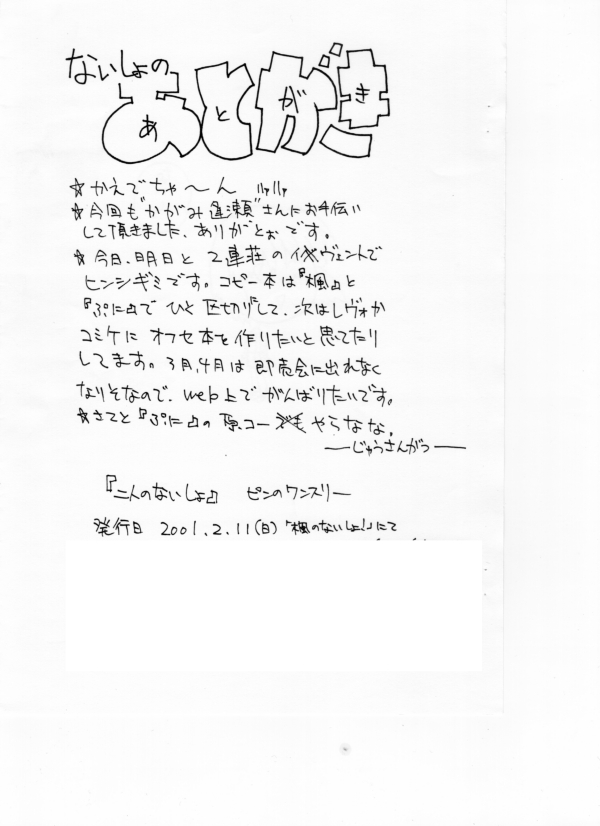 ないしょの
あとがき
☆かえでちゃ〜ん
☆今回も"かがみ逢瀬"さんにお手伝い
して頂きました、ありがとぉです。
☆今日、明日と 2連荘の イヴェントで
ヒンシギミです。コピー本は『楓』と
『ぷに』で ひと区切りして、次はレヴォか
コミケに オフセ本を作りたいと思てたり
してます。3月、4月は即売会に出れなく
なりそなので、web上で がんばりたいです。
☆さてと『ぷに』の原コー やらなな。
―じゅうさんがつ―
『二人のないしょ』 ピンのワンスリー
発行日 2001.2.11(日)「楓のないしょ!」にて